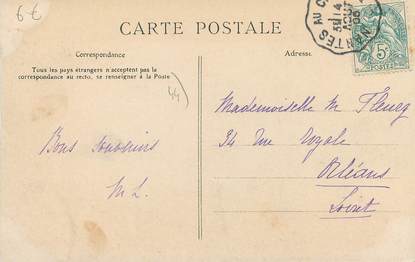 6€
CARTE POSTALE
NANTES AU C
14
AOUT
5c
POSTES
Correspondance
Adresse
Tous les pays étrangers n'acceptent pas la
correspondance au recto, se renseigner à la Poste
44
Bons souvenirs
M L.
Mademoiselle M Fleury
34 Rue Royale
Orléans
Loiret